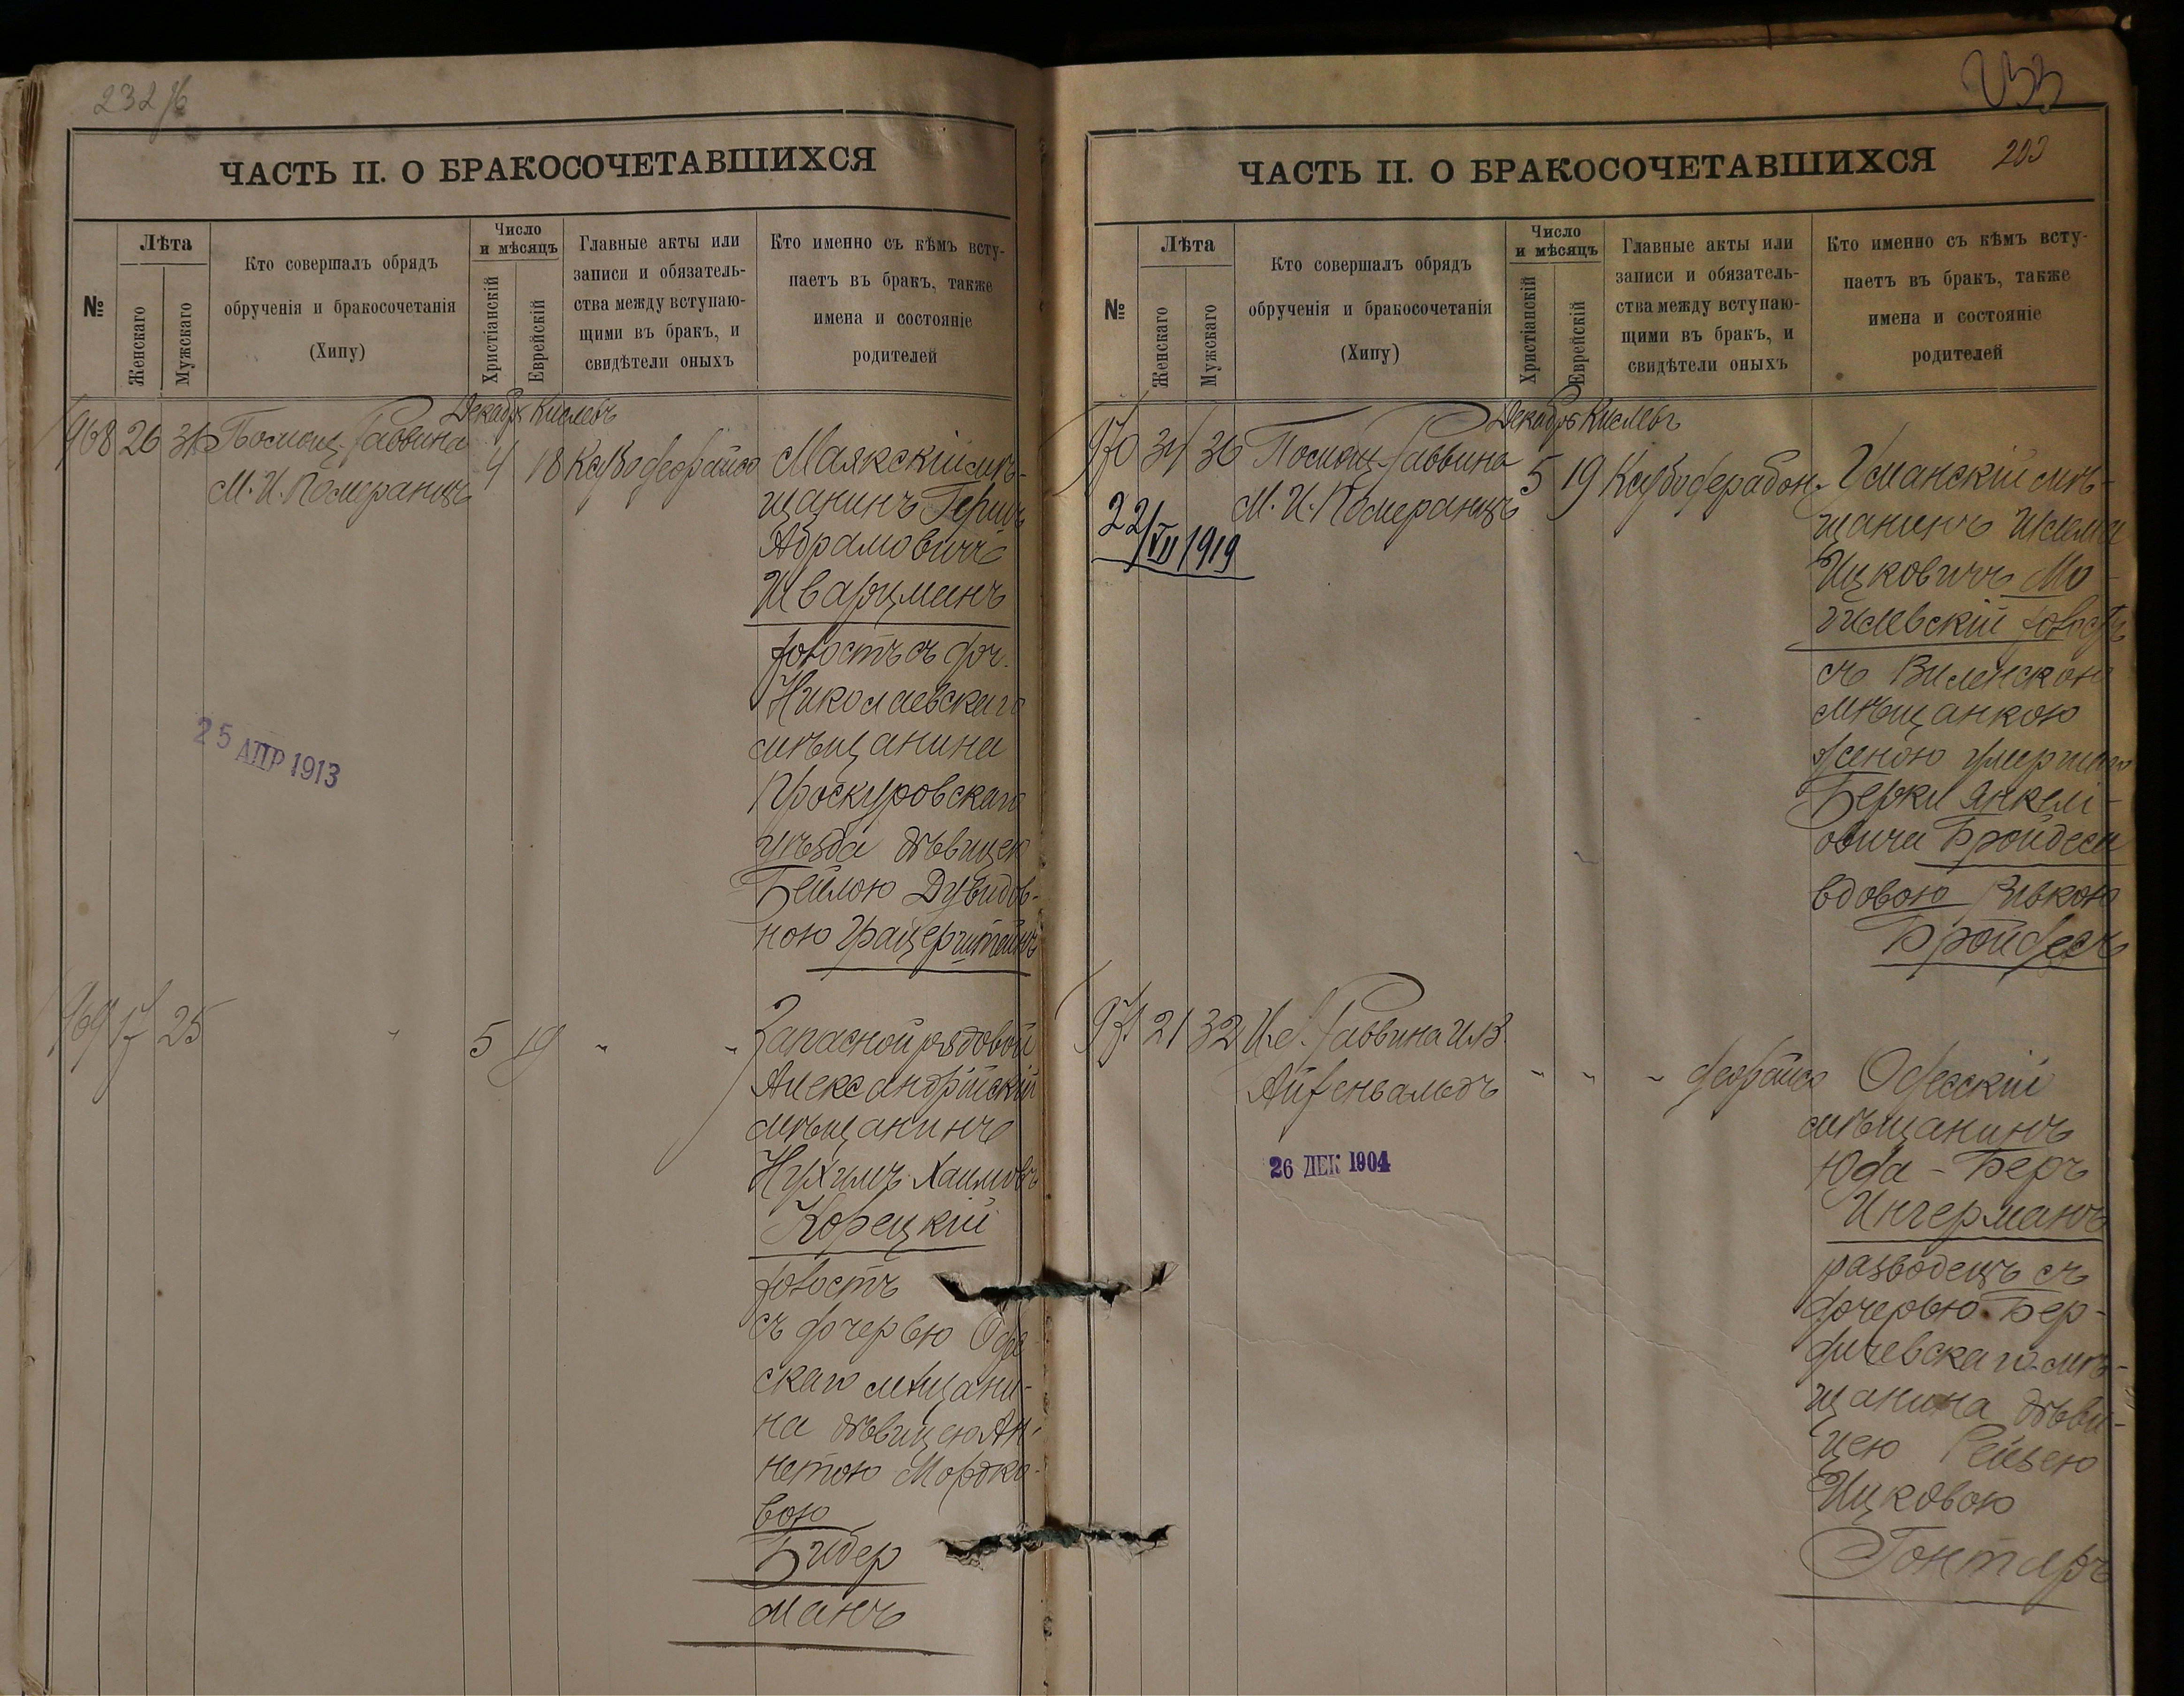 232 об
ЧАСТЬ II. О БРАКОСОЧЕТАВШИХСЯ
№
Лѣта
Женскаго
Мужскаго
Кто совершалъ обрядъ
обрученія и бракосочетанія
(Хипу)
Число
и мѣсяцъ
Христіанскій
Еврейскій
Главные акты или
записи и обязатель-
ства между вступаю-
щими въ бракъ, и
свидѣтели оныхъ
Кто именно съ кѣмъ всту-
паетъ въ бракъ, также
имена и состояніе
родителей
Декабрь Кислевъ
968 26 31 Помощ. Раввина
М. И. Померанцъ
4 18
Маякскій мѣ-
щанинъ Гершъ
Абрамовичъ
Шварцманъ
холостъ съ доч.
Николаевскаго
мѣщанина
Проскуровскаго
уѣзда дѣвицею
Бейлою Дувидов-
ною Грацерштейнъ
25 АПР 1913
969 17 25 " 5 19 " "
Запасной рядовой
Александрійскій
мѣщанинъ
Нухимъ Хаимовъ
Корецкій
холостъ
съ дочерью Одес
скаго мѣщани-
на дѣвицею Ан-
нетою Мордко-
вою
Бибер
манъ
233
ЧАСТЬ II. О БРАКОСОЧЕТАВШИХСЯ
№
Лѣта
Женскаго
Мужскаго
Кто совершалъ обрядъ
обрученія и бракосочетанія
(Хипу)
Число
и мѣсяцъ
Христіанскій
Еврейскій
Главные акты или
записи и обязатель-
ства между вступаю-
щими въ бракъ, и
свидѣтели оныхъ
Кто именно съ кѣмъ всту-
паетъ въ бракъ, также
имена и состояніе
родителей
Декабрь Кислевъ
970 34 36 Помощ. Раввина
М. И. Померанцъ
5 19
22/VII 1919
Уманскій мѣ-
щанинъ
Ицковичъ Мо-
гилевскій холостъ
съ Виленскою
мѣщанкою
женою умершаго
Берки Янкеле-
овича Бройдеса
вдовою Ривкою
Бройдесъ
971 21 32 И.д. Раввина
Айзенвальдъ
" " "
26 ДЕК 1904
Одесскій
мѣщанинъ
Юда-Беръ
Ингерманъ
разводецъ съ
дочерью Бер-
дичевскаго мѣ-
щанина дѣви-
цею Рейзею
Ицковою
Гонтаръ